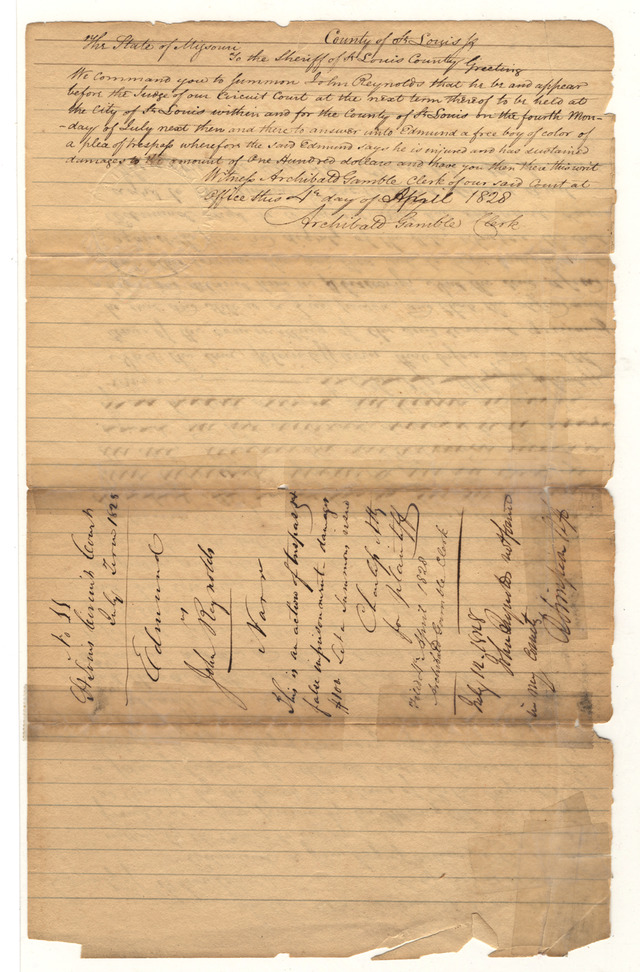 The State of Missouri County of St Louis
To the Sheriff of St Louis County Greeting
We command you to summon John Reynolds that he be and appear
before the Judge of our Circuit Court at the next term thereof to be held at
the City of St Louis within and for the County of St Louis on the fourth Mon-
-day of July next then and there to answer unto Edmund a free boy of color of
a plea of trespass wherefore the said Edmund says he is injured and has sustained
damages to the amount of One Hundred dollars and have you then there this writ
Witness Archibald Gamble Clerk of our said Court at
Office this 4th day of April 1828
Archibald Gamble Clerk
No 11
St Louis Circuit Court
July Term 1828
Edmund
vs
John Reynolds
Narr
This is an action of trespass &
false imprisonment damages
$100 Let a Summons issue
Atty
for plaintiff
Filed 4th April 1828
Archibald Gamble Clerk
July 12. 1828
John Reynolds not found
in my County